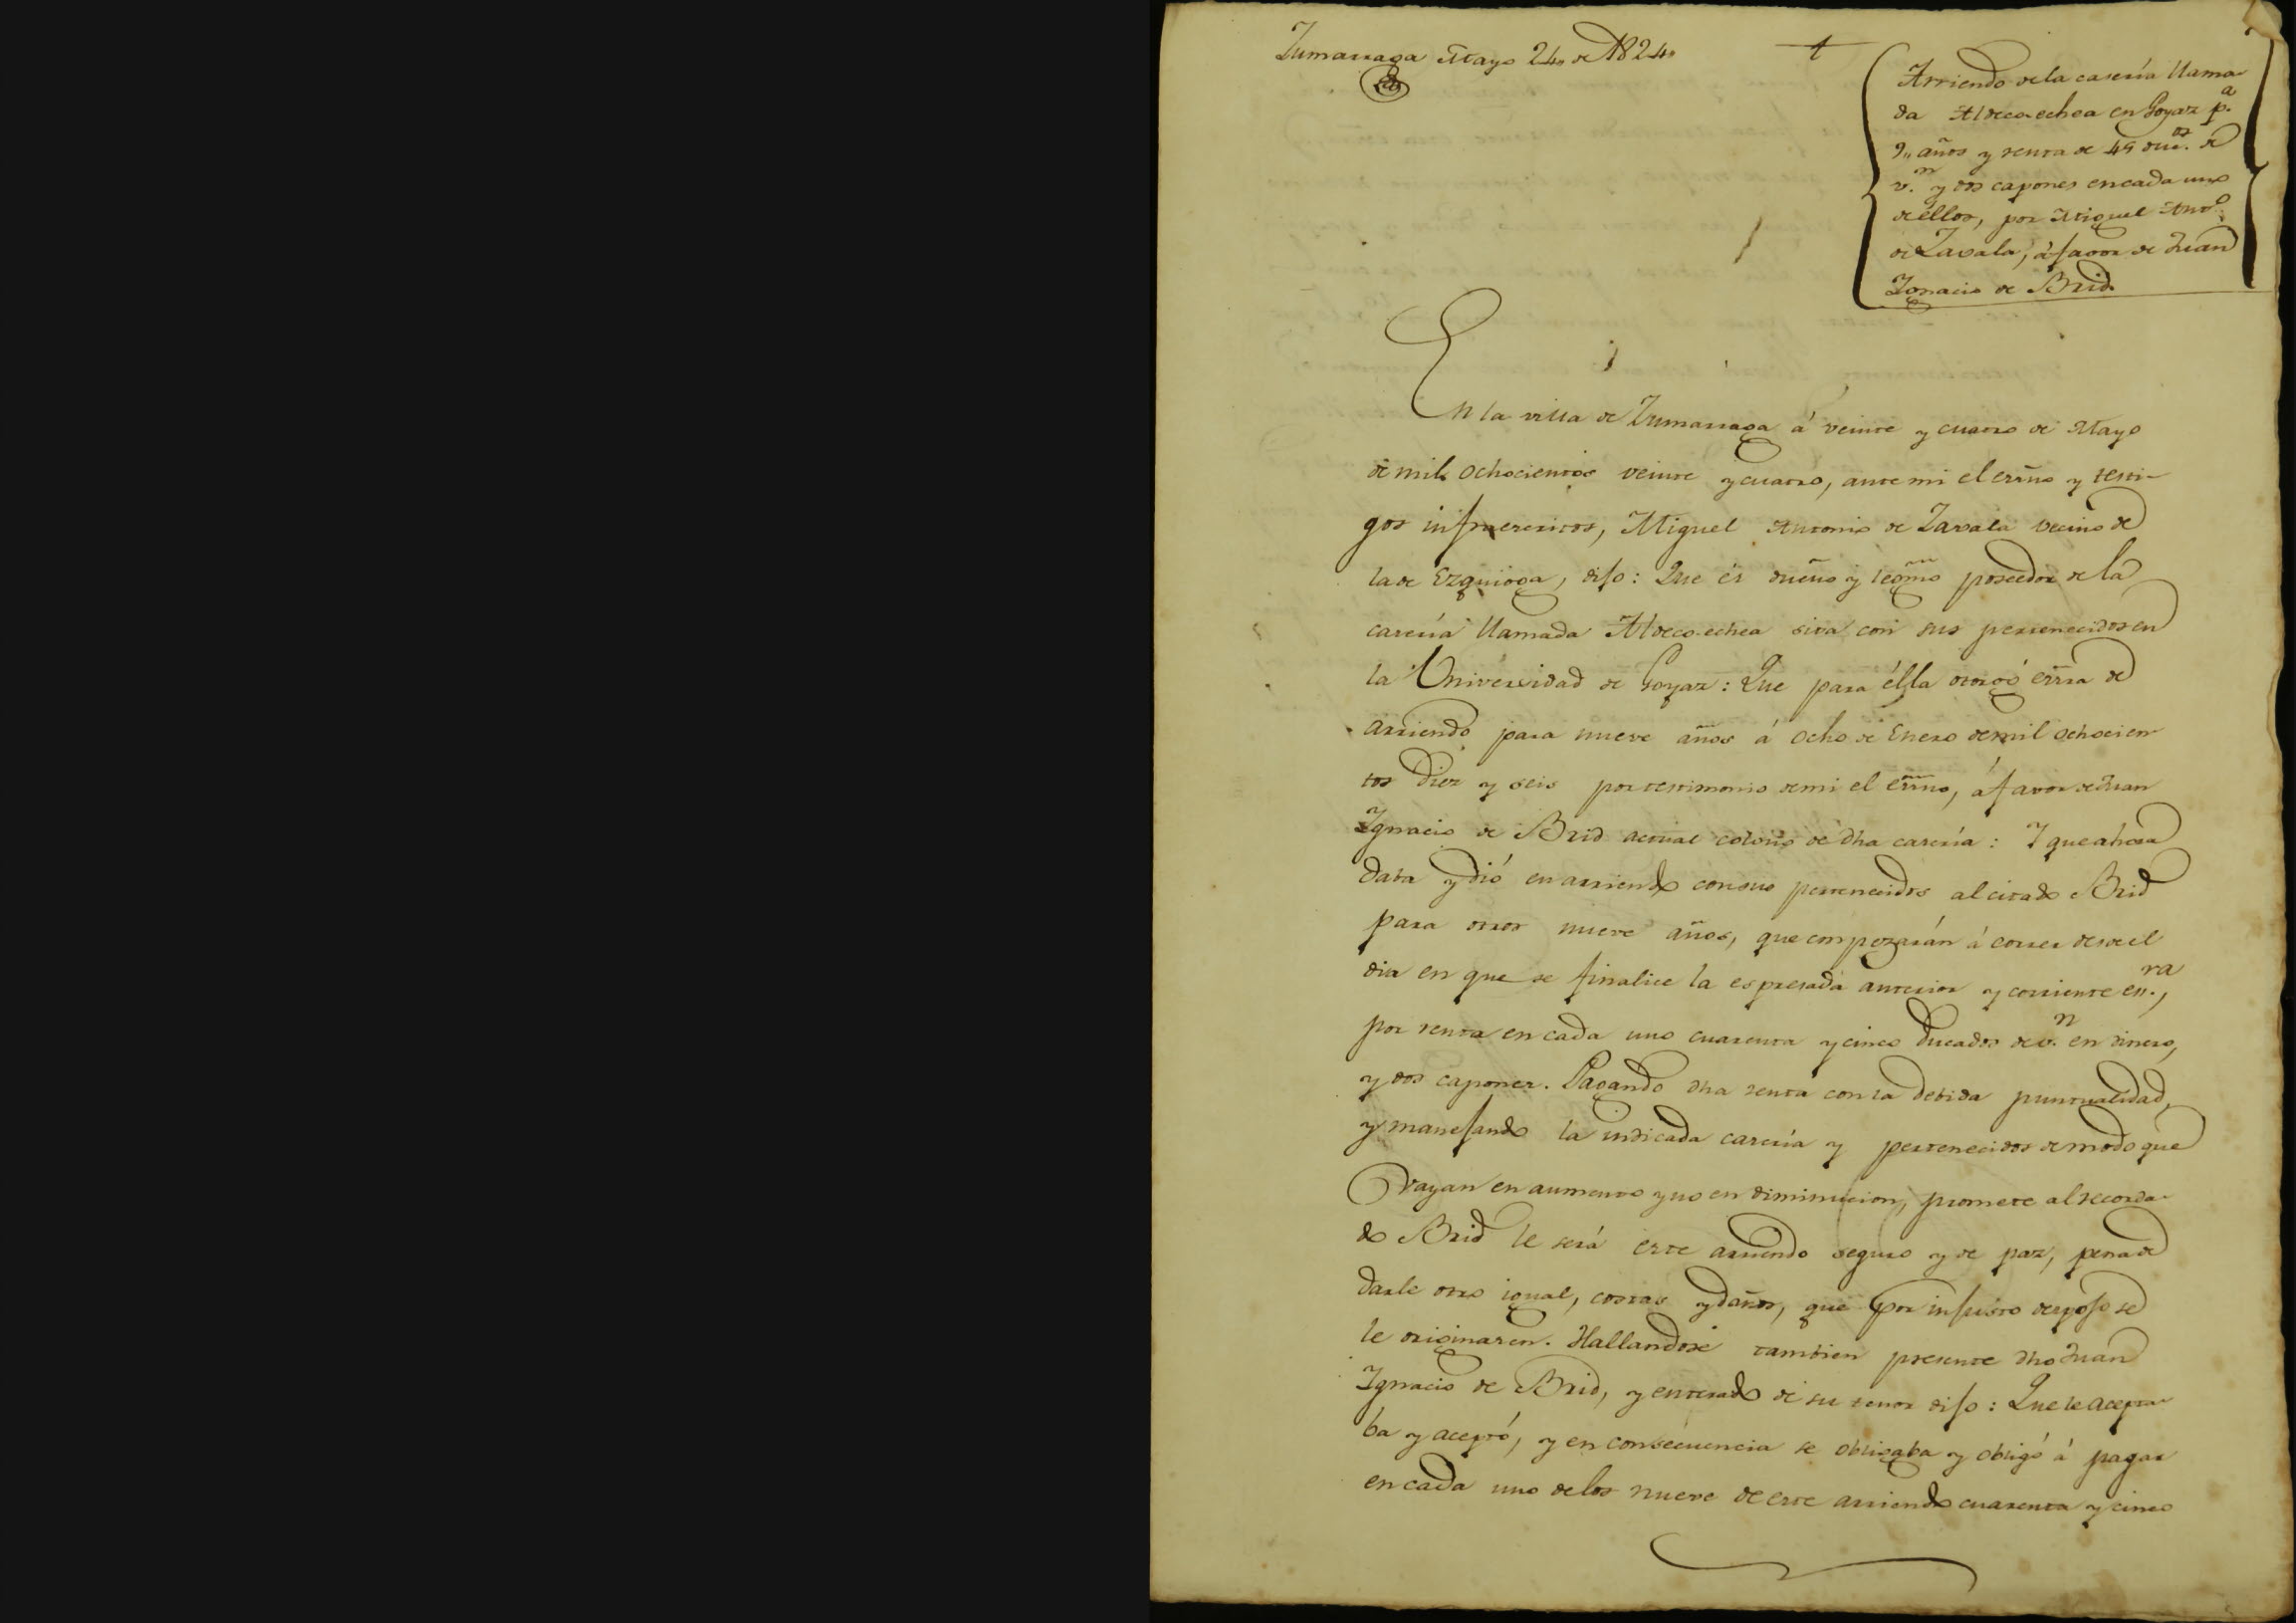 Zumarraga Mayo 24 de 1824
Arriendo de la caseria llama-
da Aldeco-echea en Goyaz p.ª
9 años y renta de 45 duc.os de
v.n y dos capones en cada uno
de éllos, por Miguel Ant.o
de Zavala, á favor de Juan
Ygnacio de Brid.
En la villa de Zumarraga á veinte y cuatro de Mayo
de mil ochocientos veinte y cuatro, ante mi el esno y testi-
gos infraescritos, Miguel Antonio de Zavala vecino de
la de Ezquioga, dijo: Que es dueño y legmo poseedor de la
caseria llamada Aldeco-echea sita con sus pertenecidos en
la Universidad de Goyaz: Que para élla otorgó esrra de
arriendo para nueve años á ocho de Enero de mil ochocien
tos diez y seis por testimonio de mi el esno, á favor de Juan
Ygnacio de Brid actual colono de dha caseria: Y que ahora
daba y dió en arriendo con sus pertenecidos al citado Brid
para otros nueve años, que empezarán á correr desde el
dia en que se finalice la espresada anterior y corriente es.ra,
por renta en cada uno cuarenta y cinco ducados de v.n en dinero,
y dos capones. Pagando dha renta con la debida puntualidad,
y manejando la indicada caseria y pertenecidos de modo que
vayan en aumento y no en diminucion, promete al recorda-
do Brid le será este arriendo seguro y de paz, pena de
darle otro igual, costas y daños, que por injusto despojo se
le originaren. Hallandose tambien presente dho Juan
Ygnacio de Brid, y enterado de su tenor dijo: Que le acepta-
ba y aceptó, y en consecuencia se obligaba y obligó á pagar
en cada uno de los nueve de este arriendo cuarenta y cinco